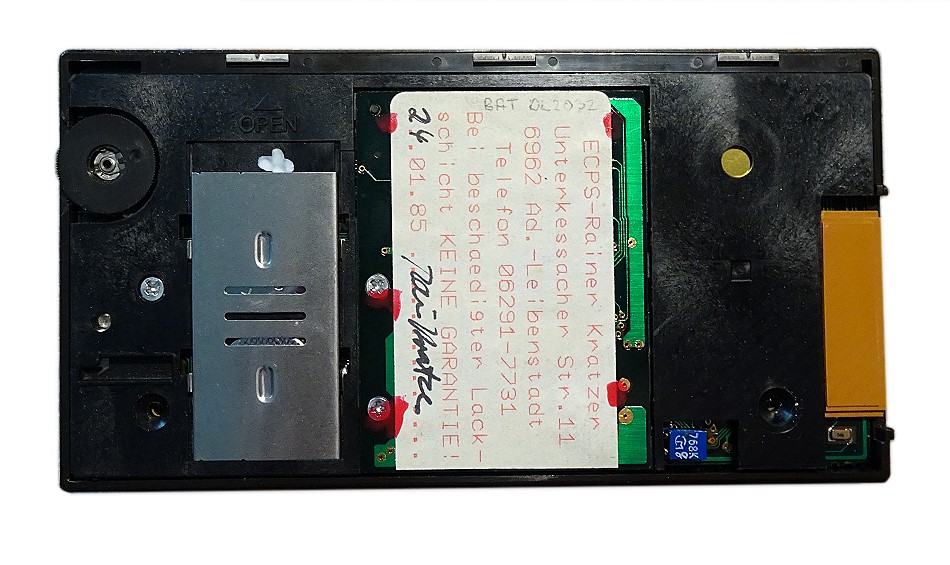 OPEN
BAT CL2032
ECPS-Rainer Kratzer
Unterkessacher Str.11
6962 Ad.-Leibenstadt
Telefon 06291-7731
Bei beschaedigter Lack-
schicht KEINE GARANTIE!
24.01.85
768K